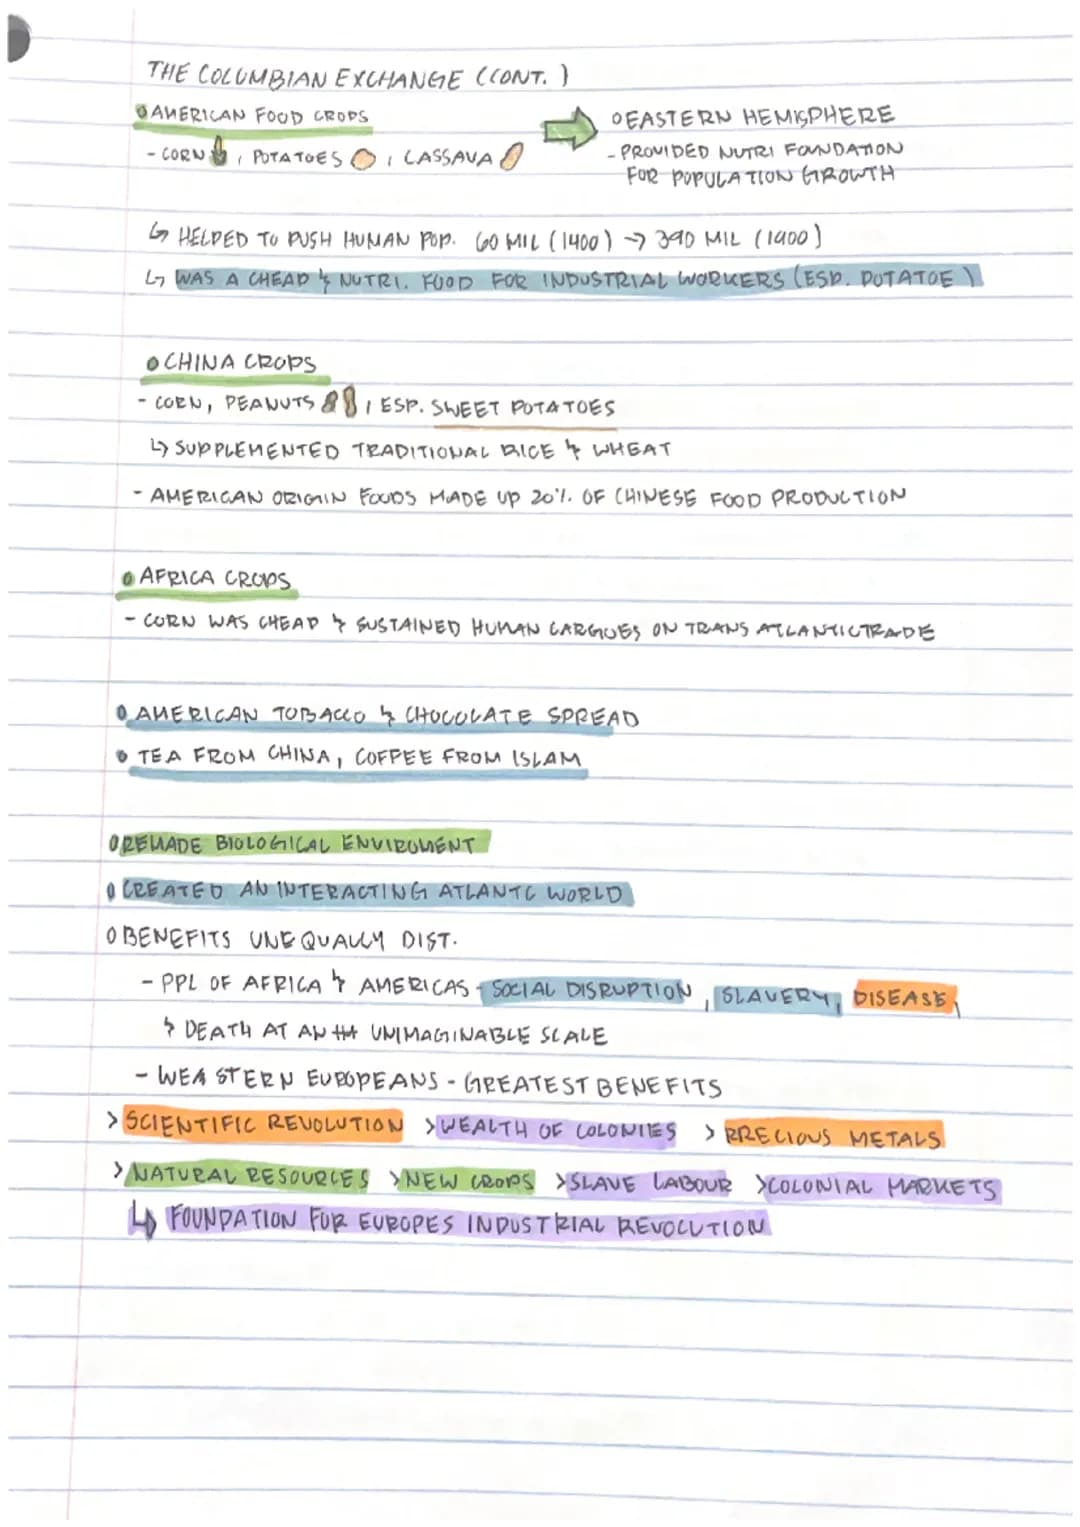 THE COLUMBIAN EXCHANGE (CONT.)
AMERICAN FOOD CROPS
- CORN, POTATOES, CASSAVA
EASTERN HEMISPHERE
- PROVIDED NUTRI FOUNDATION
FOR POPULATION GROWTH
↳ HELPED TO PUSH HUMAN POP. 60 MIL (1400) → 390 MIL (1900)
↳ WAS A CHEAP & NUTRI. FOOD FOR INDUSTRIAL WORKERS (ESP. POTATOE)
CHINA CROPS
- CORN, PEANUTS, ESP. SWEET POTATOES
↳ SUPPLEMENTED TRADITIONAL RICE & WHEAT
- AMERICAN ORIGIN FOODS MADE UP 20% OF CHINESE FOOD PRODUCTION
AFRICA CROPS
- CORN WAS CHEAP & SUSTAINED HUMAN CARGOES ON TRANS ATLANTIC TRADE
AMERICAN TOBACCO & CHOCOLATE SPREAD
TEA FROM CHINA, COFFEE FROM ISLAM
REMADE BIOLOGICAL ENVIROMENT
CREATED AN INTERACTING ATLANTC WORLD
BENEFITS UNEQUALLY DIST.
- PPL OF AFRICA & AMERICAS - SOCIAL DISRUPTION, SLAVERY, DISEASE,
& DEATH AT AN UNIMAGINABLE SCALE
- WEASTERN EUROPEANS - GREATEST BENEFITS
> SCIENTIFIC REVOLUTION > WEALTH OF COLONIES > PRECIOUS METALS
> NATURAL RESOURCES > NEW CROPS > SLAVE LABOUR > COLONIAL MARKETS
↳ FOUNDATION FOR EUROPES INDUSTRIAL REVOLUTION